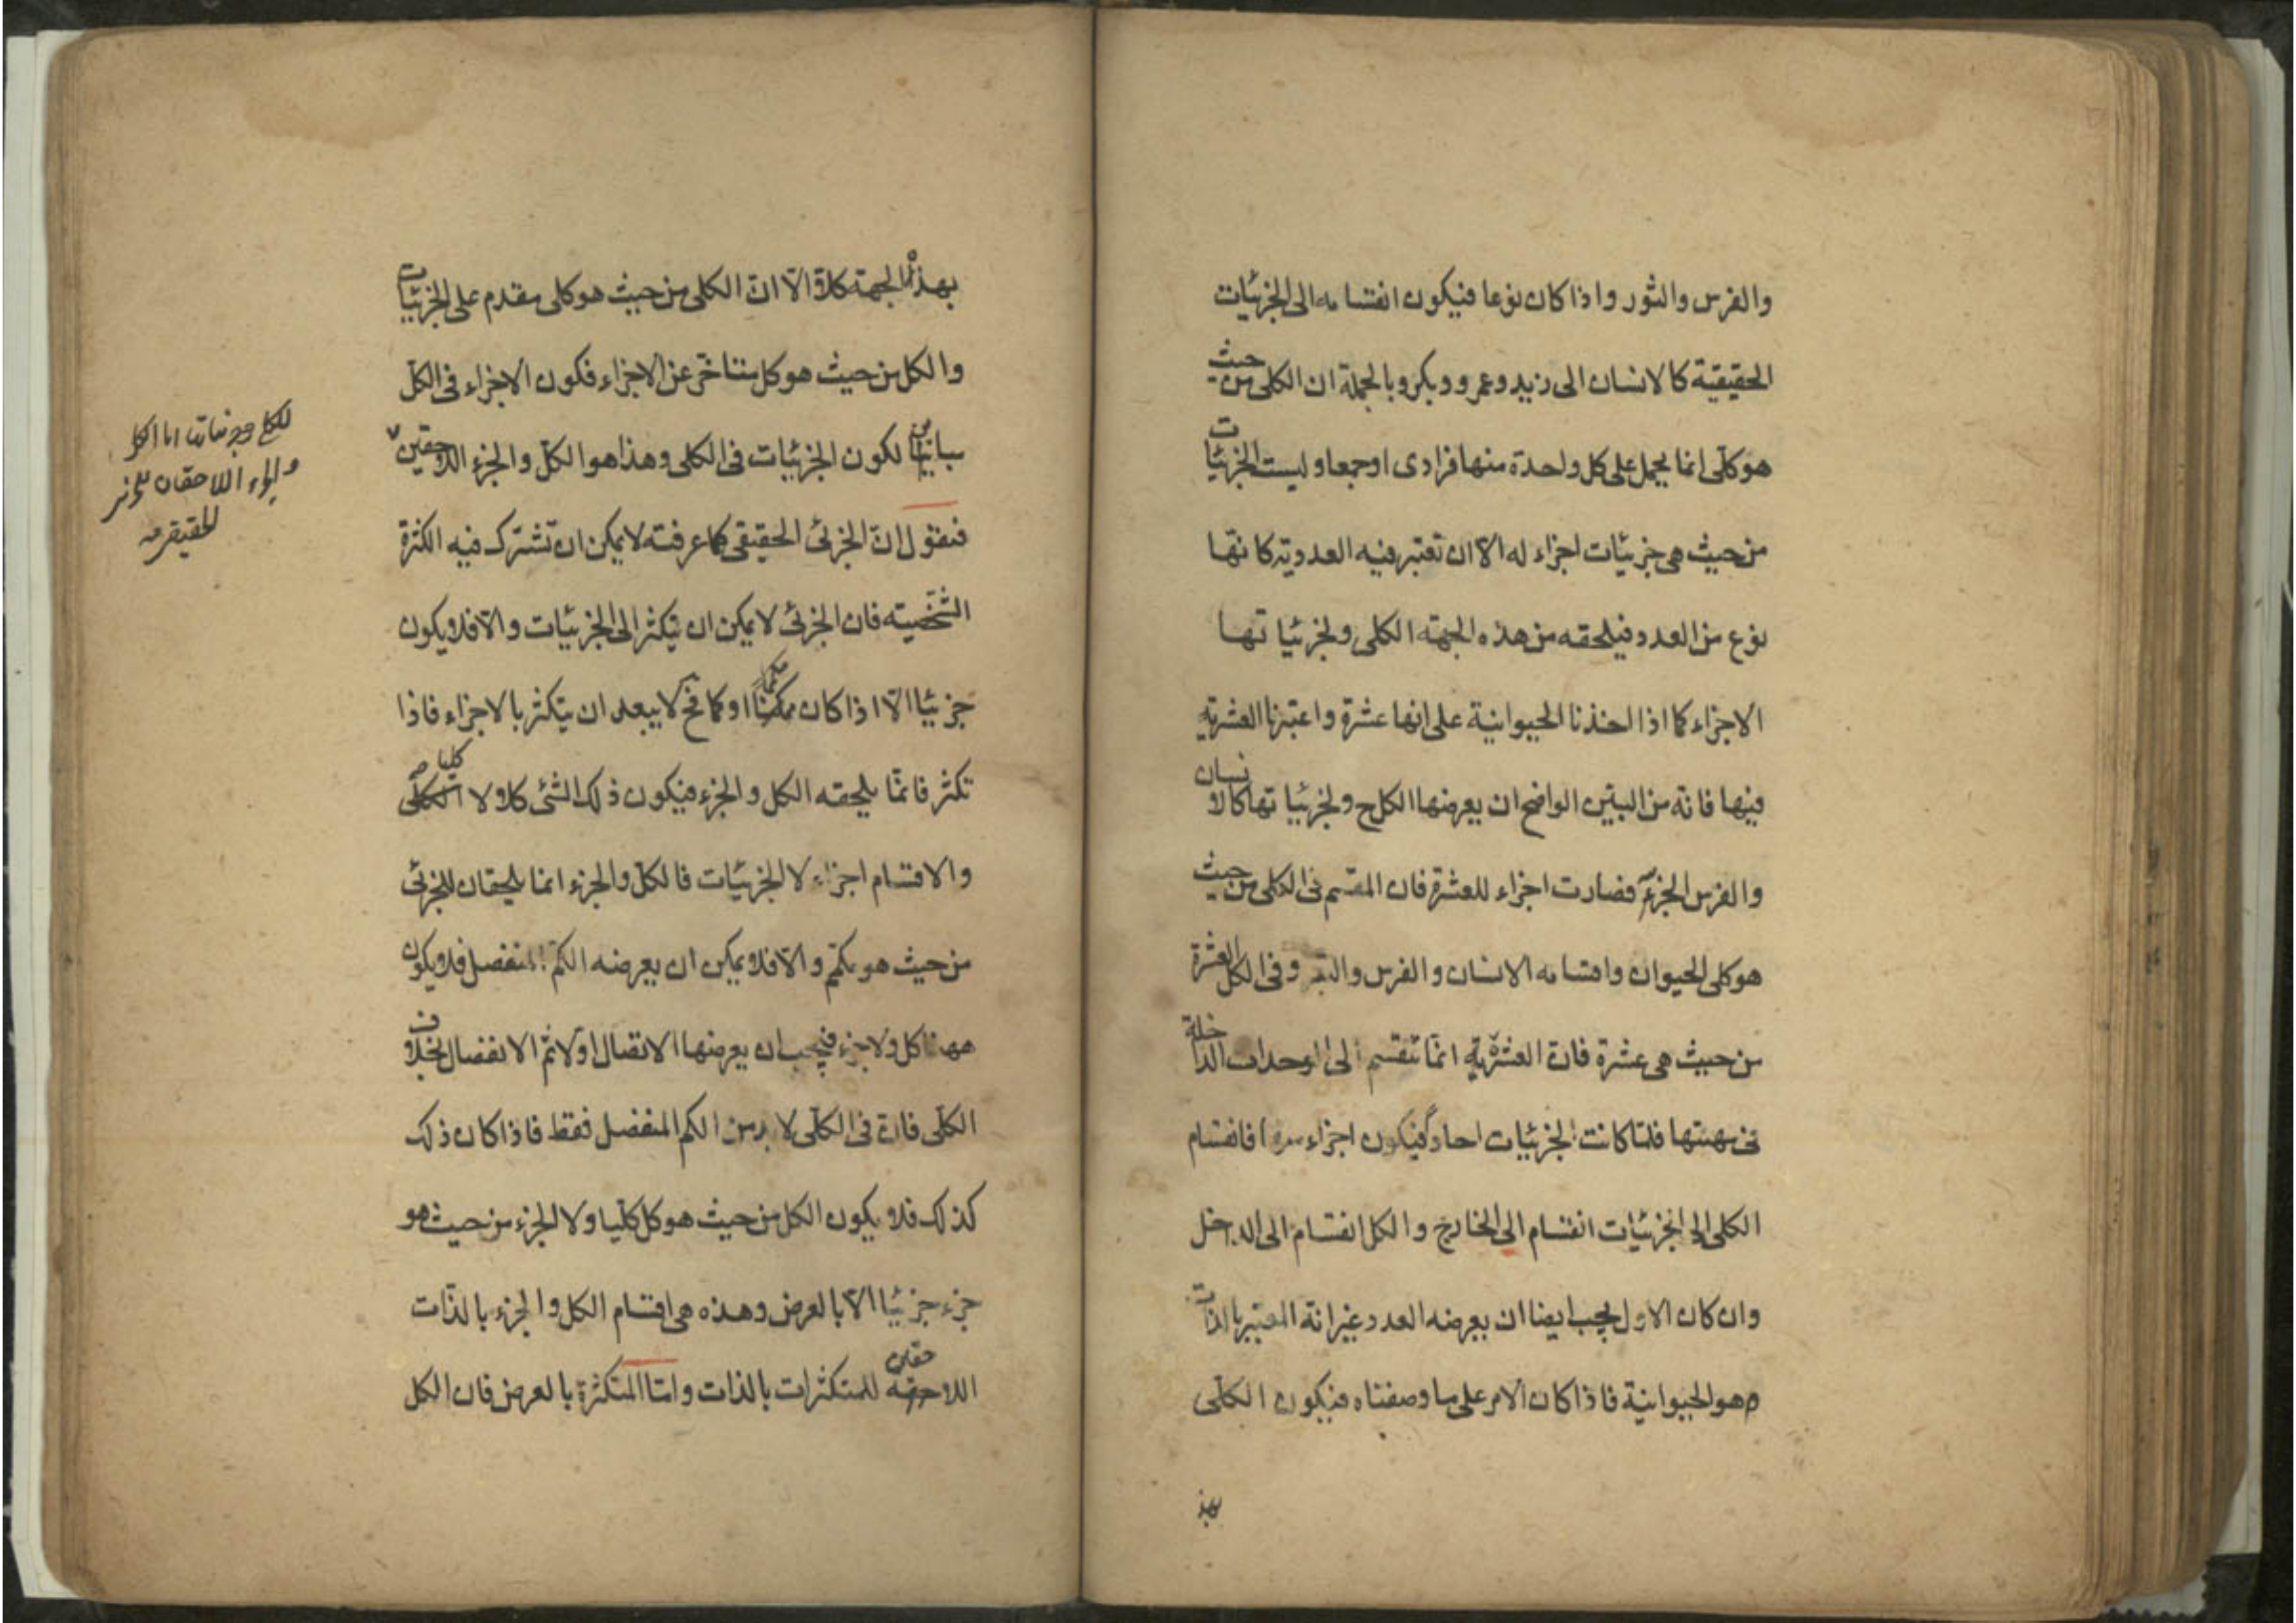 والفرس والثور واذا كان نوعا فيكون انقسامه الى الجزئيات
الحقيقية كالانسان الى زيد وعمرو وبكر وبالجملة ان الكلى من حيث
هو كلّى انما يحمل على كل واحدة منها فرادى او جمعا وليست الجزئيات
من حيث هى جزئيات اجزاء له الاّ ان تعتبر فيه العددية كانّها
نوع من العدد فيلحقه من هذه الجهة الكلى ولجزئياتها
الاجزاء كما اذا اخذنا الحيوانية على انها عشرة واعتبرنا العشرية
فيها فانّه من البيّن الواضح ان يعرضها الكل ح ولجزئياتها كالانسان
والفرس الجزء فصارت اجزاء للعشرة فان المقسم فى الكلى من حيث
هو كلى الحيوان واقسامه الانسان والفرس والبقر وفى الكل العشرة
من حيث هى عشرة فانّ العشريّة انّما تنقسم الى الوحدات الداخلة
فلمّا كانت الجزئيات احادا فيكون اجزاء فانقسام
الكلى الى الجزئيات انقسام الى الخارج والكل انقسام الى الداخل
وان كان الاول يجب ايضا ان يعرضه العدد غير انّه المعتبر بالذات
هو الحيوانية فاذا كان الامر على ما وصفناه فيكون الكلّى
بهذ
بهذه الجهة كلاّ الاّ انّ الكلى من حيث هو كلى مقدم على الجزئيات
والكل من حيث هو كل متأخّر عن الاجزاء فكون الاجزاء فى الكلّ
مباين لكون الجزئيات فى الكلى وهذا هو الكلّ والجزء اللاحقين
فنقول انّ الجزئى الحقيقى كما عرفته لا يمكن ان تشترك فيه الكثرة
الشّخصية فان الجزئى لا يمكن ان يتكثر الى الجزئيات والاّ فلا يكون
جزئيا الاّ اذا كان او كما فح لا يبعد ان يتكثر بالاجزاء فاذا
تكثر فانّما يلحقه الكل والجزء فيكون ذلك الشئ كلا ولا كليا
والاقسام اجزاء لا الجزئيات فالكلّ والجزء انما يلحقان للجزئى
من حيث هو كمّ والاّ فلا يمكن ان يعرضه الكمّ المنفصل فلا يكون
ههنا كل ولا جزء فيجب ان يعرضها الاتصال اولا ثم الانفصال بخلاف
الكلّى فانّ فى الكلّى لا بد من الكم المنفصل فقط فاذا كان ذلك
كذلك فلا يكون الكل من حيث هو كل كلّيا ولا الجزء من حيث هو
جزء جزئيا الاّ بالعرض وهذه هى اقسام الكل والجزء بالذّات
اللاحقين للمتكثرات بالذات وامّا المتكثرة بالعرض فان الكل
للكلى وجزئياته اما الكل
والجزء اللاحقان للجزئى
الحقيقى